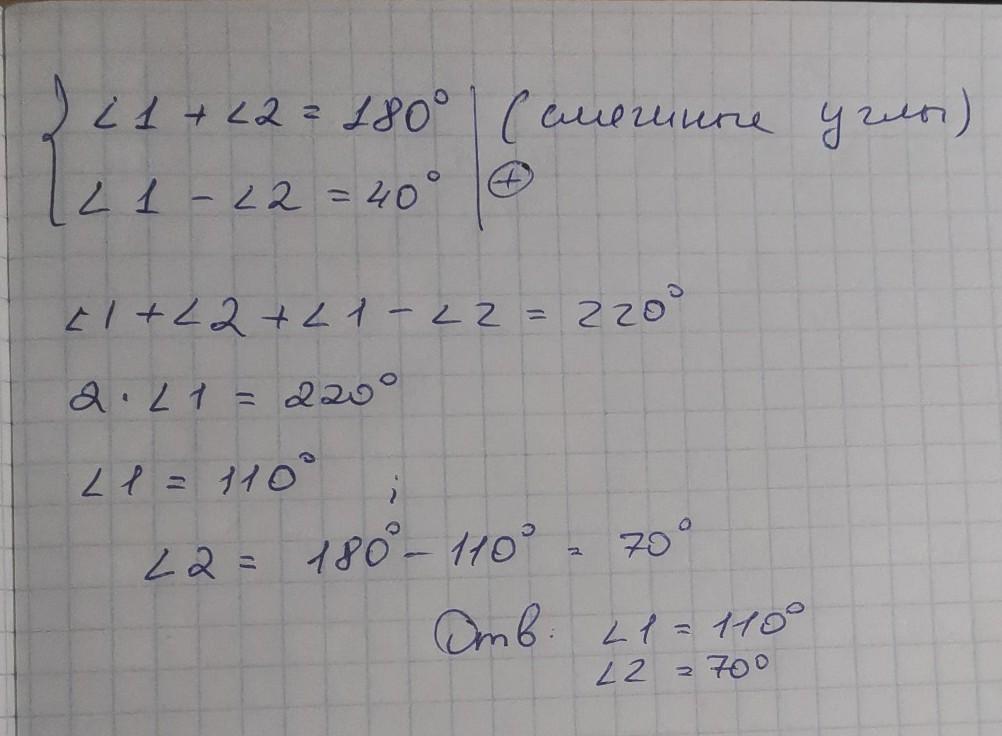 ∠1 + ∠2 = 180° | (смежные углы)
∠1 - ∠2 = 40° | ⊕
∠1 + ∠2 + ∠1 - ∠2 = 220°
2 · ∠1 = 220°
∠1 = 110° ;
∠2 = 180° - 110° = 70°
Отв: ∠1 = 110°
∠2 = 70°